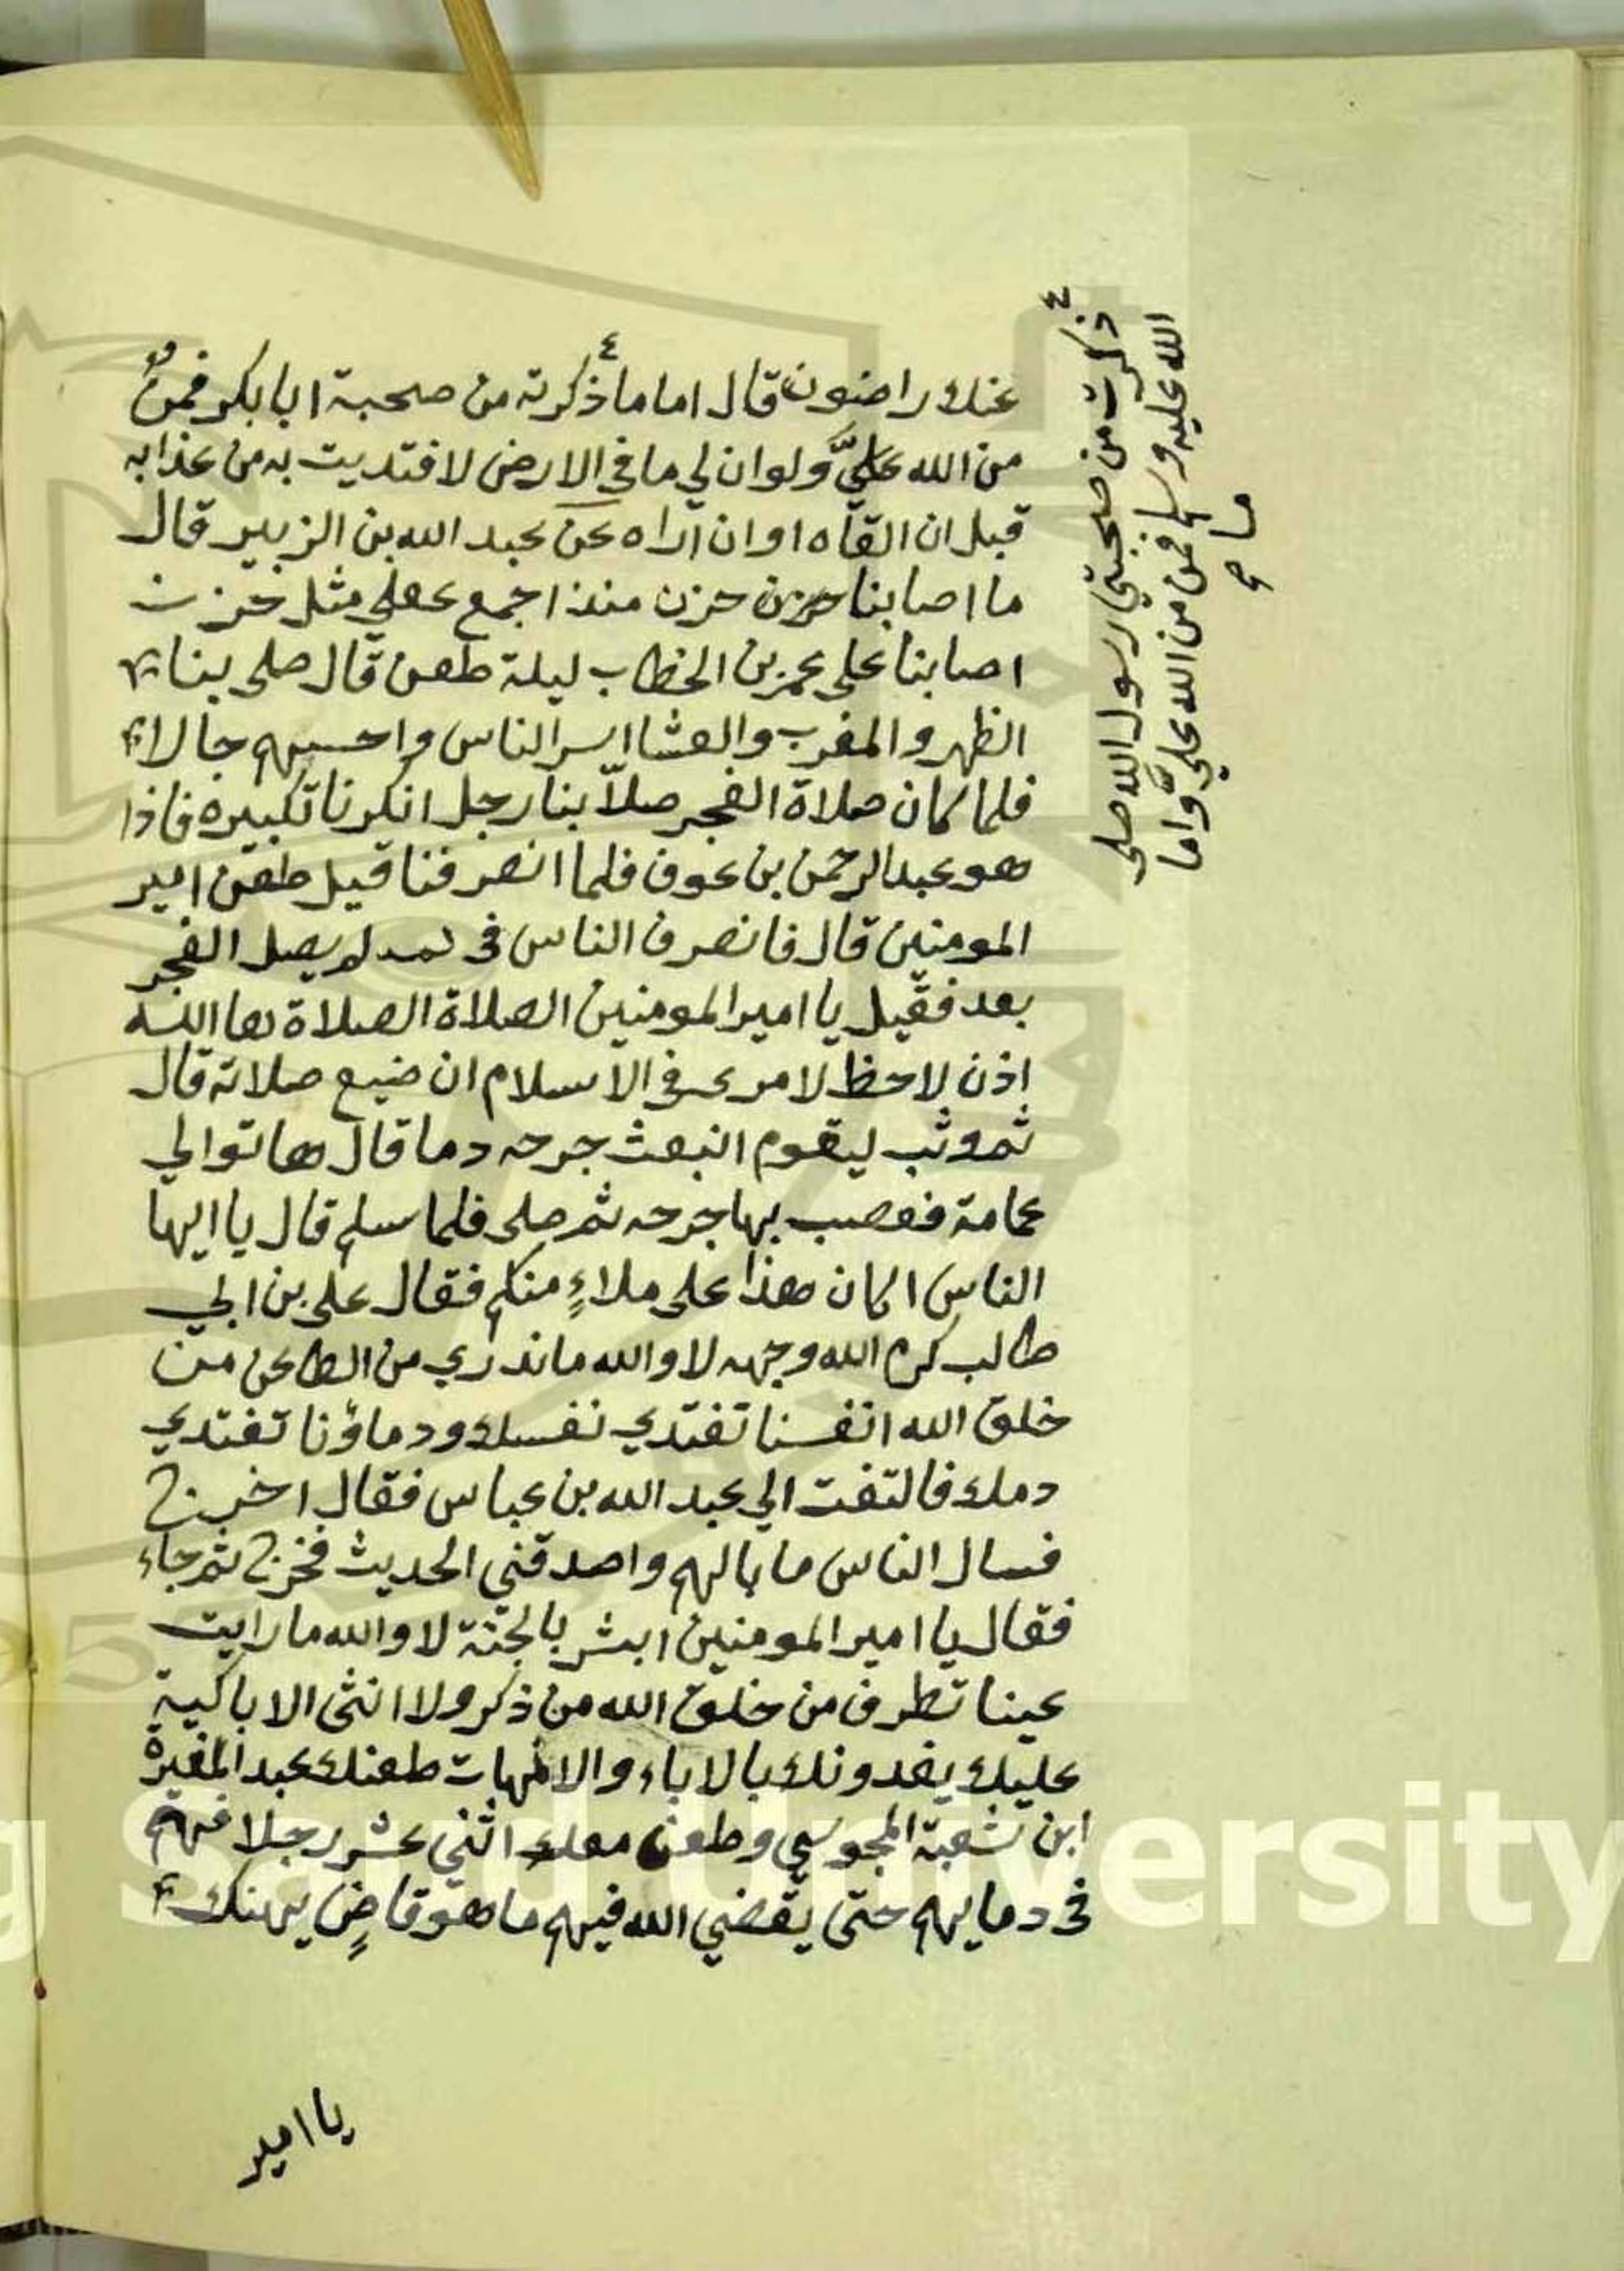 عنك راضون قال اما ما ذكرته من صحبة ابا بكر فمن
من الله عليَّ ولو ان لي ما في الارض لافتديت به من عذابه
قبل ان القاه او ان اراه عن عبد الله بن الزبير قال
ما اصابنا حزن منذ اجمع عقلي مثل حزن
اصابنا على عمر بن الخطاب ليلة طعن قال صلى بنا
الظهر والمغرب والعشا اسر الناس واحسنهم حالا
فلما كان صلاة الفجر صلاّ بنا رجل انكرنا تكبيره فاذا
هو عبد الرحمن بن عوف فلما انصرفنا قيل طعن امير
المومنين قال فانصرف الناس في لم يصل الفجر
بعد فقيل يا امير المومنين الصلاة الصلاة ها الله
اذن لا حظ لامرء في الاسلام ان ضيع صلاته قال
ثم وثب ليقوم انبعث جرحه دما قال هاتوا لي
عمامة فعصب بها جرحه ثم صلى فلما سلم قال يا ايها
الناس اكان هذا على ملاءٍ منكم فقال علي بن ابي
طالب كرم الله وجهه لا والله ما ندري من الطاعن من
خلق الله انفسنا تفتدي نفسك ودماؤنا تفتدي
دمك فالتفت الي عبد الله بن عباس فقال اخرج
فسال الناس ما بالهم واصدقني الحديث فخرج ثم جاء
فقال يا امير المومنين ابشر بالجنة لا والله ما رايت
عينا تطرف من خلق الله من ذكر ولا انثى الا باكية
عليك يفدونك بالاباء والامهات طعنك عبد المغيرة
ابن شعبة المجوسي وطعن معك اثني عشر رجلا فهم
في دمايهم حتى يقضي الله فيهم ما هو قاضٍ يهنك
يا امير
ذكرت من صحبتي رسول الله صلى
الله عليه وسلم فمن من الله عليَّ واما
King Saud University